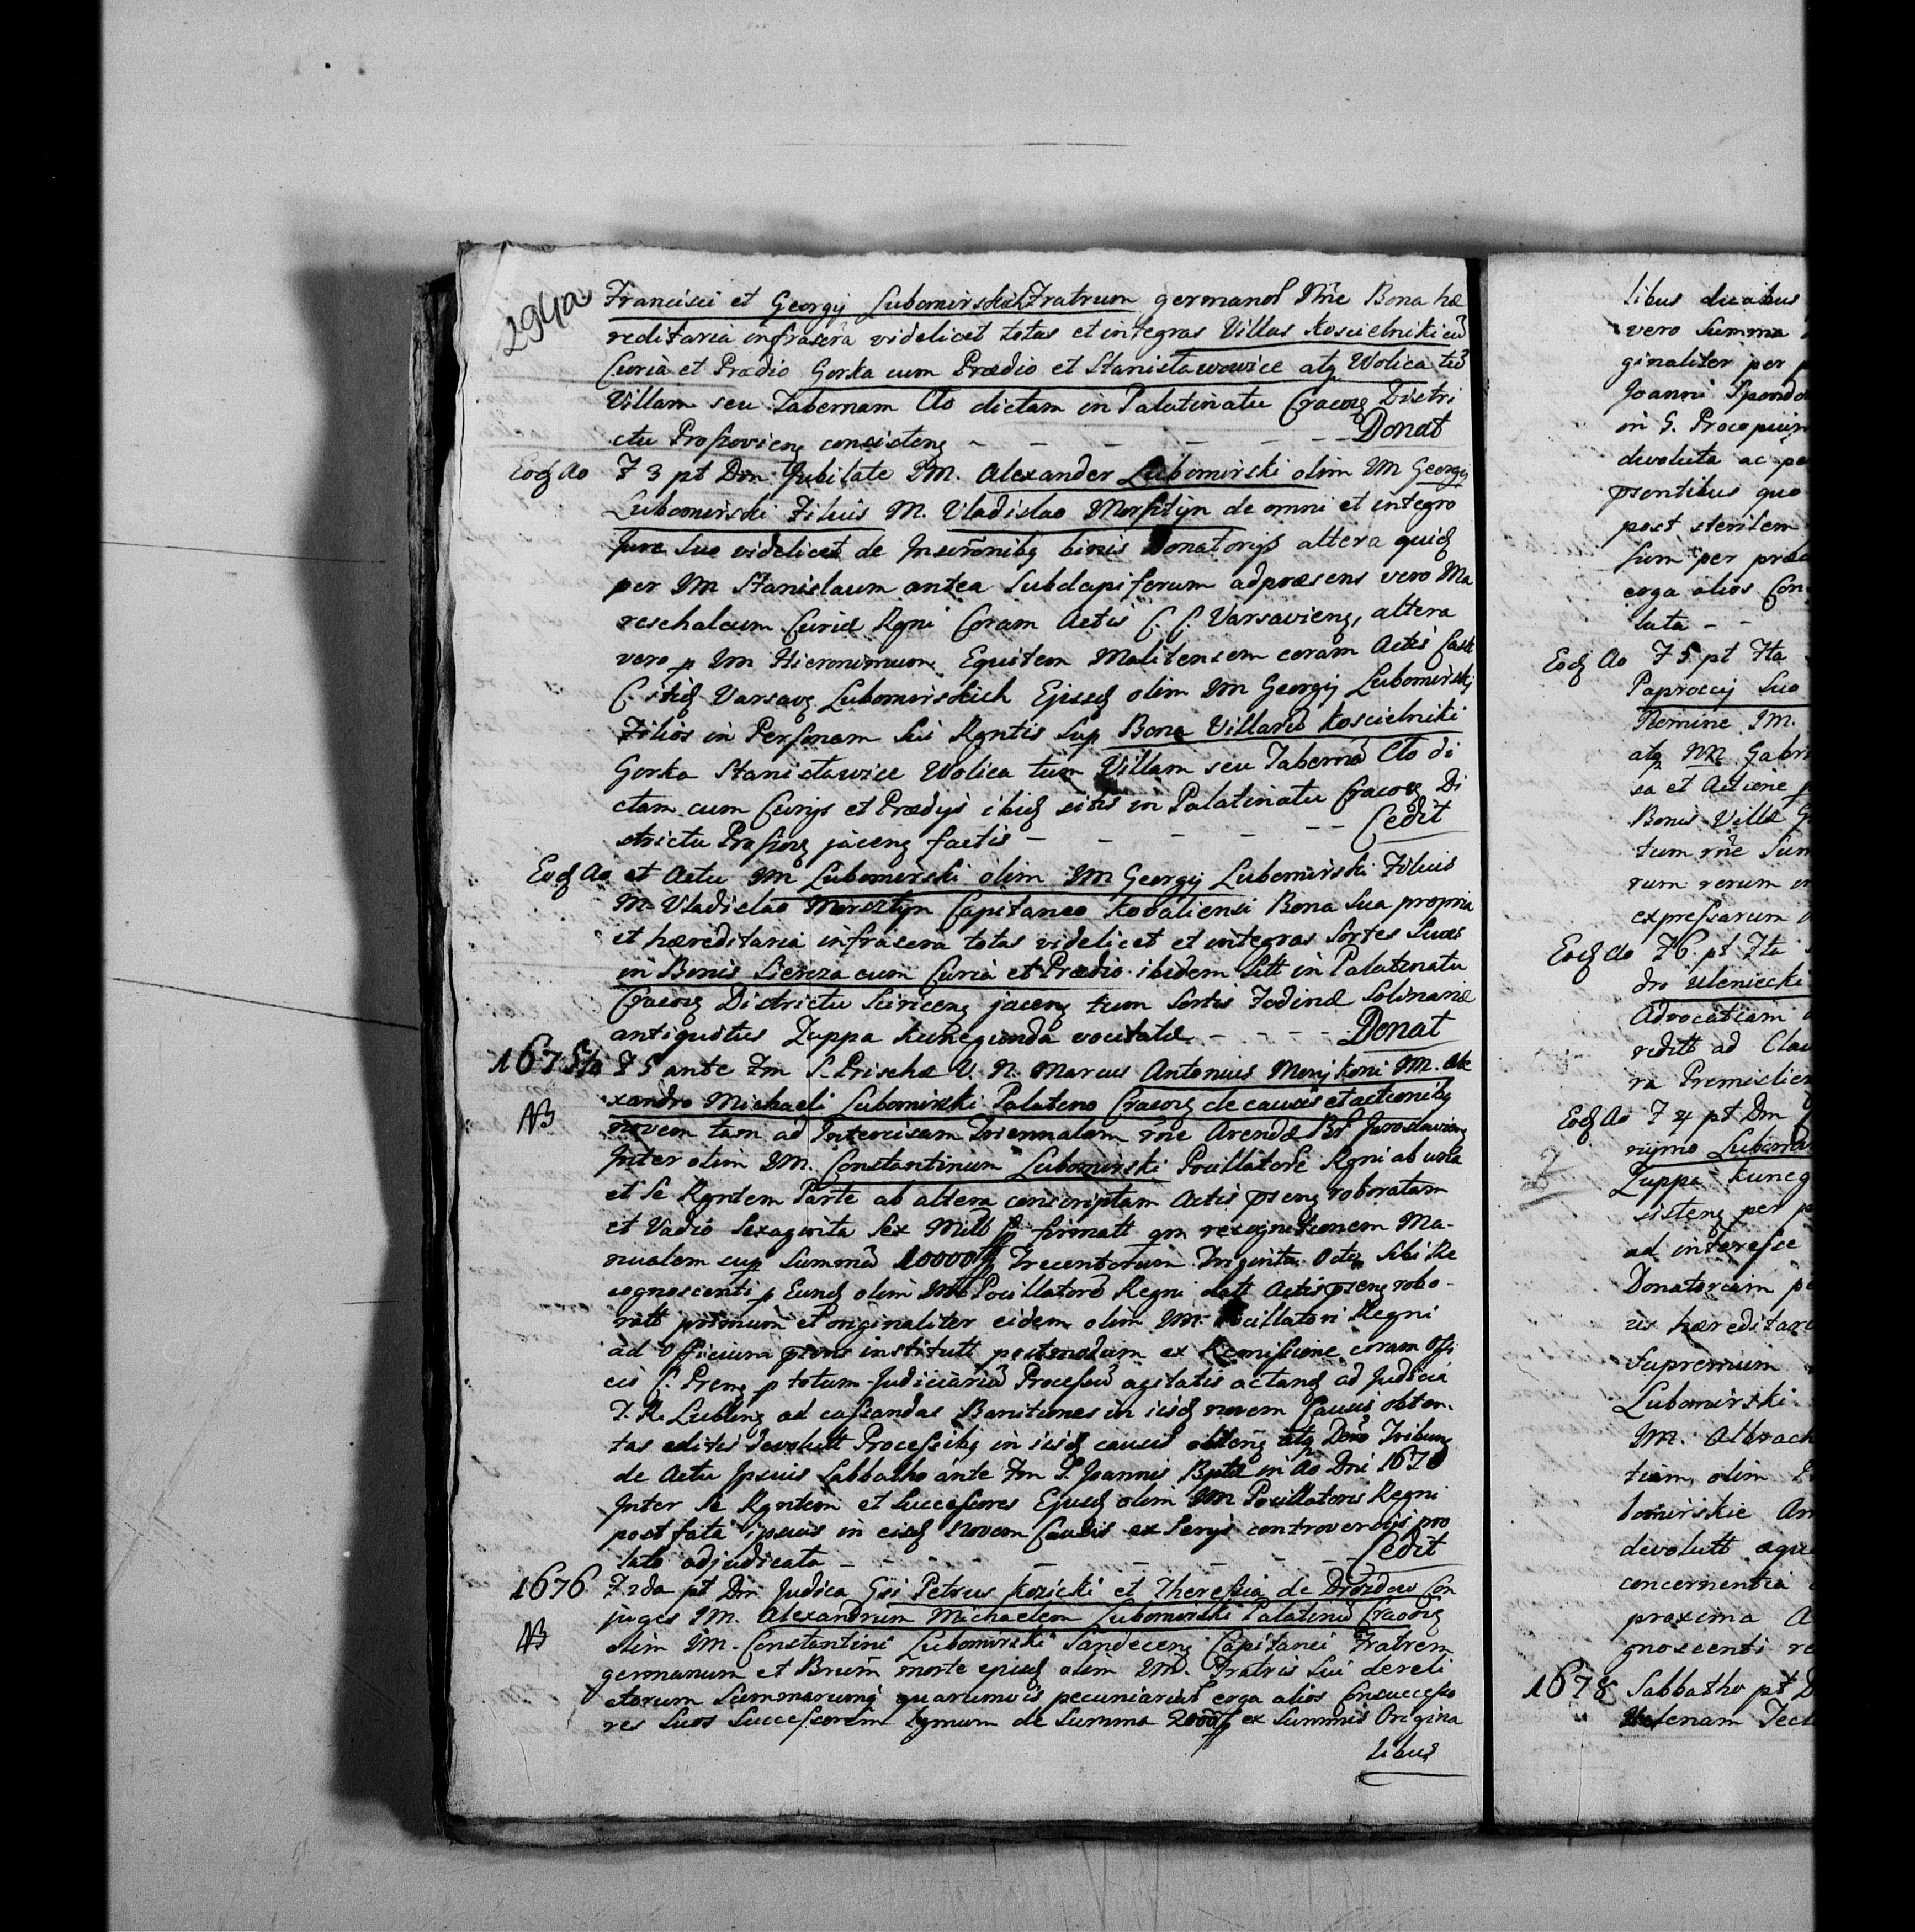 294a
Francisci et Georgij Lubomirskich Fratrum germanor Rne Bona hæ
reditaria infrascra videlicet totas et integras Villas Koscielniki cu
Curia et Prædio Gorka cum Prædio et Stanisławowice atq Wolica tu
Villam seu Tabernam Clo dictam in Palatinatu Cracov Distri
ctu Proszovicen consisten - - - - - - Donat
Eod Ao F 3 pt Dm Jubilate IM. Alexander Lubomirski olim IM Georgij
Lubomirski Filius M. Vladislao Morsztyn de omni et integro
Jure Suo videlicet de Inscronibq binis Donatorijs altera quid
per IM Stanislaum antea Subdapiferum ad præsens vero Ma
reschalcum Curiæ Rgni Coram Actis C. C. Varsavien, altera
vero p IM Hieronimum Equitem Melitensem coram Actis Cast
C ibid Varsav Lubomirskich Ejusd olim IM Georgij Lubomirskj
Filios in Personam Sui Rgntis Sup Bona Villaru Koscielniki
Gorka Stanisławice Wolica tum Villam seu Taberna Clo di
ctam cum Curijs et Prædijs ibid sitis in Palatinatu Cracov Di
strictu Proszov jacen factis - - - - - Cedit
Eod Ao et Actu IM Lubomirski olim IM Georgij Lubomirski Filius
M. Vladislao Morsztyn Capitaneo Kovaliensi Bona Sua propria
et hæreditaria infrascra totas videlicet et integras Sortes Suas
in Bonis Siercza cum Curia et Prædio ibidem Sitt in Palatinatu
Cracov Districtu Sciricen jacen tum Sortis Fodinæ Salinariæ
antiquitus Zuppa Kunegunda vocitatæ - - - - Donat
1675to F 5 ante Fm S. Priscæ V. N. Marcus Antonius Monjkoni IM. Ale
NB
xandro Michaeli Lubomirski Palatino Cracov de causis et actionibq
novem tam ad Intercisam Triennalem rne Arendæ Br Jaroslavien
Inter olim IM. Constantinum Lubomirski Pocillatore Rgni ab una
et Se Rgntem Parte ab altera conscriptam Actis psen roboratam
et Vadio Sexaginta Sex Mill fl firmatt qm recognitionem Ma-
nualem sup Summa 10000 fl Trecentorum Triginta Octo Sibi Re
cognoscenti p Eund olim IM Pocillatore Regni datt Actis psen robo-
ratt primum et originaliter eidem olim IM. Pocillatori Regni
ad Officium pens institutt postmodum ex Remissione coram Offi
cio C. Pren p totum Judiciariu Processu agitatis actand ad Judicia
T. R. Lublinq ad cassandas Banitiones in iisd novem Causis obten-
tas editis devolutt Processibq in iisd causis obten atq Deto Tribun
de Actu Ipsius Sabbatho ante Fm S. Joannis Bptæ in Ao Dni 1670
Inter Se Rgntem et Successores Ejusd olim IM Pocillatoris Regni
post fata ipsius in eisd novem Causis ex Serijs controversijs pro
lato adjudicata - - - - - - - - Cedit
1676 F 2da pt Dm Judica Gsi Petrus Kozicki et Theressia de Drozdow Con
NB
juges IM. Alexandrum Michaelem Lubomirski Palatinu Cracov
olim IM. Constantini Lubomirski Sandecen Capitanei Fratrem
germanum et Bnum morte ejusd olim IM. Fratris Sui dereli
ctorum Summarumq quarumvis pecuniariar erga alios Consuccesso
res Suos Successorem lgmum de Summa 2000 fl ex Summis Origina
libus
libus ducabus
vero Summa
ginaliter per p
Joanni Spond
in S. Procopium
devoluta ac pe
psentibus quo
post sterilem
sum per præd
erga alios Con
luta - -
Eod Ao F 5 pt Fta
Paprocij Suo
Nomine IM.
atq NN. Gabri
sa et Actione p
Bonis Villæ G
tum rne Sum
rum rerum in
expressarum
Eod Ao F 6 pt Fta
dro Uleniecki
Advocatiam
reditt ad Clau
ra Premislien
Eod Ao F 4 pt Dm
nymo Lubomir
Zuppa Kuneg
sisten per p
ad interesse
Donatoream pe
us hæreditari
Supremum
Lubomirski
IM. Albrach
tiam olim
bomirskie An
devolutt æqu
concernentia
proxima A
gnoscenti re
1678 Sabbatho pt D
Helenam Tecl